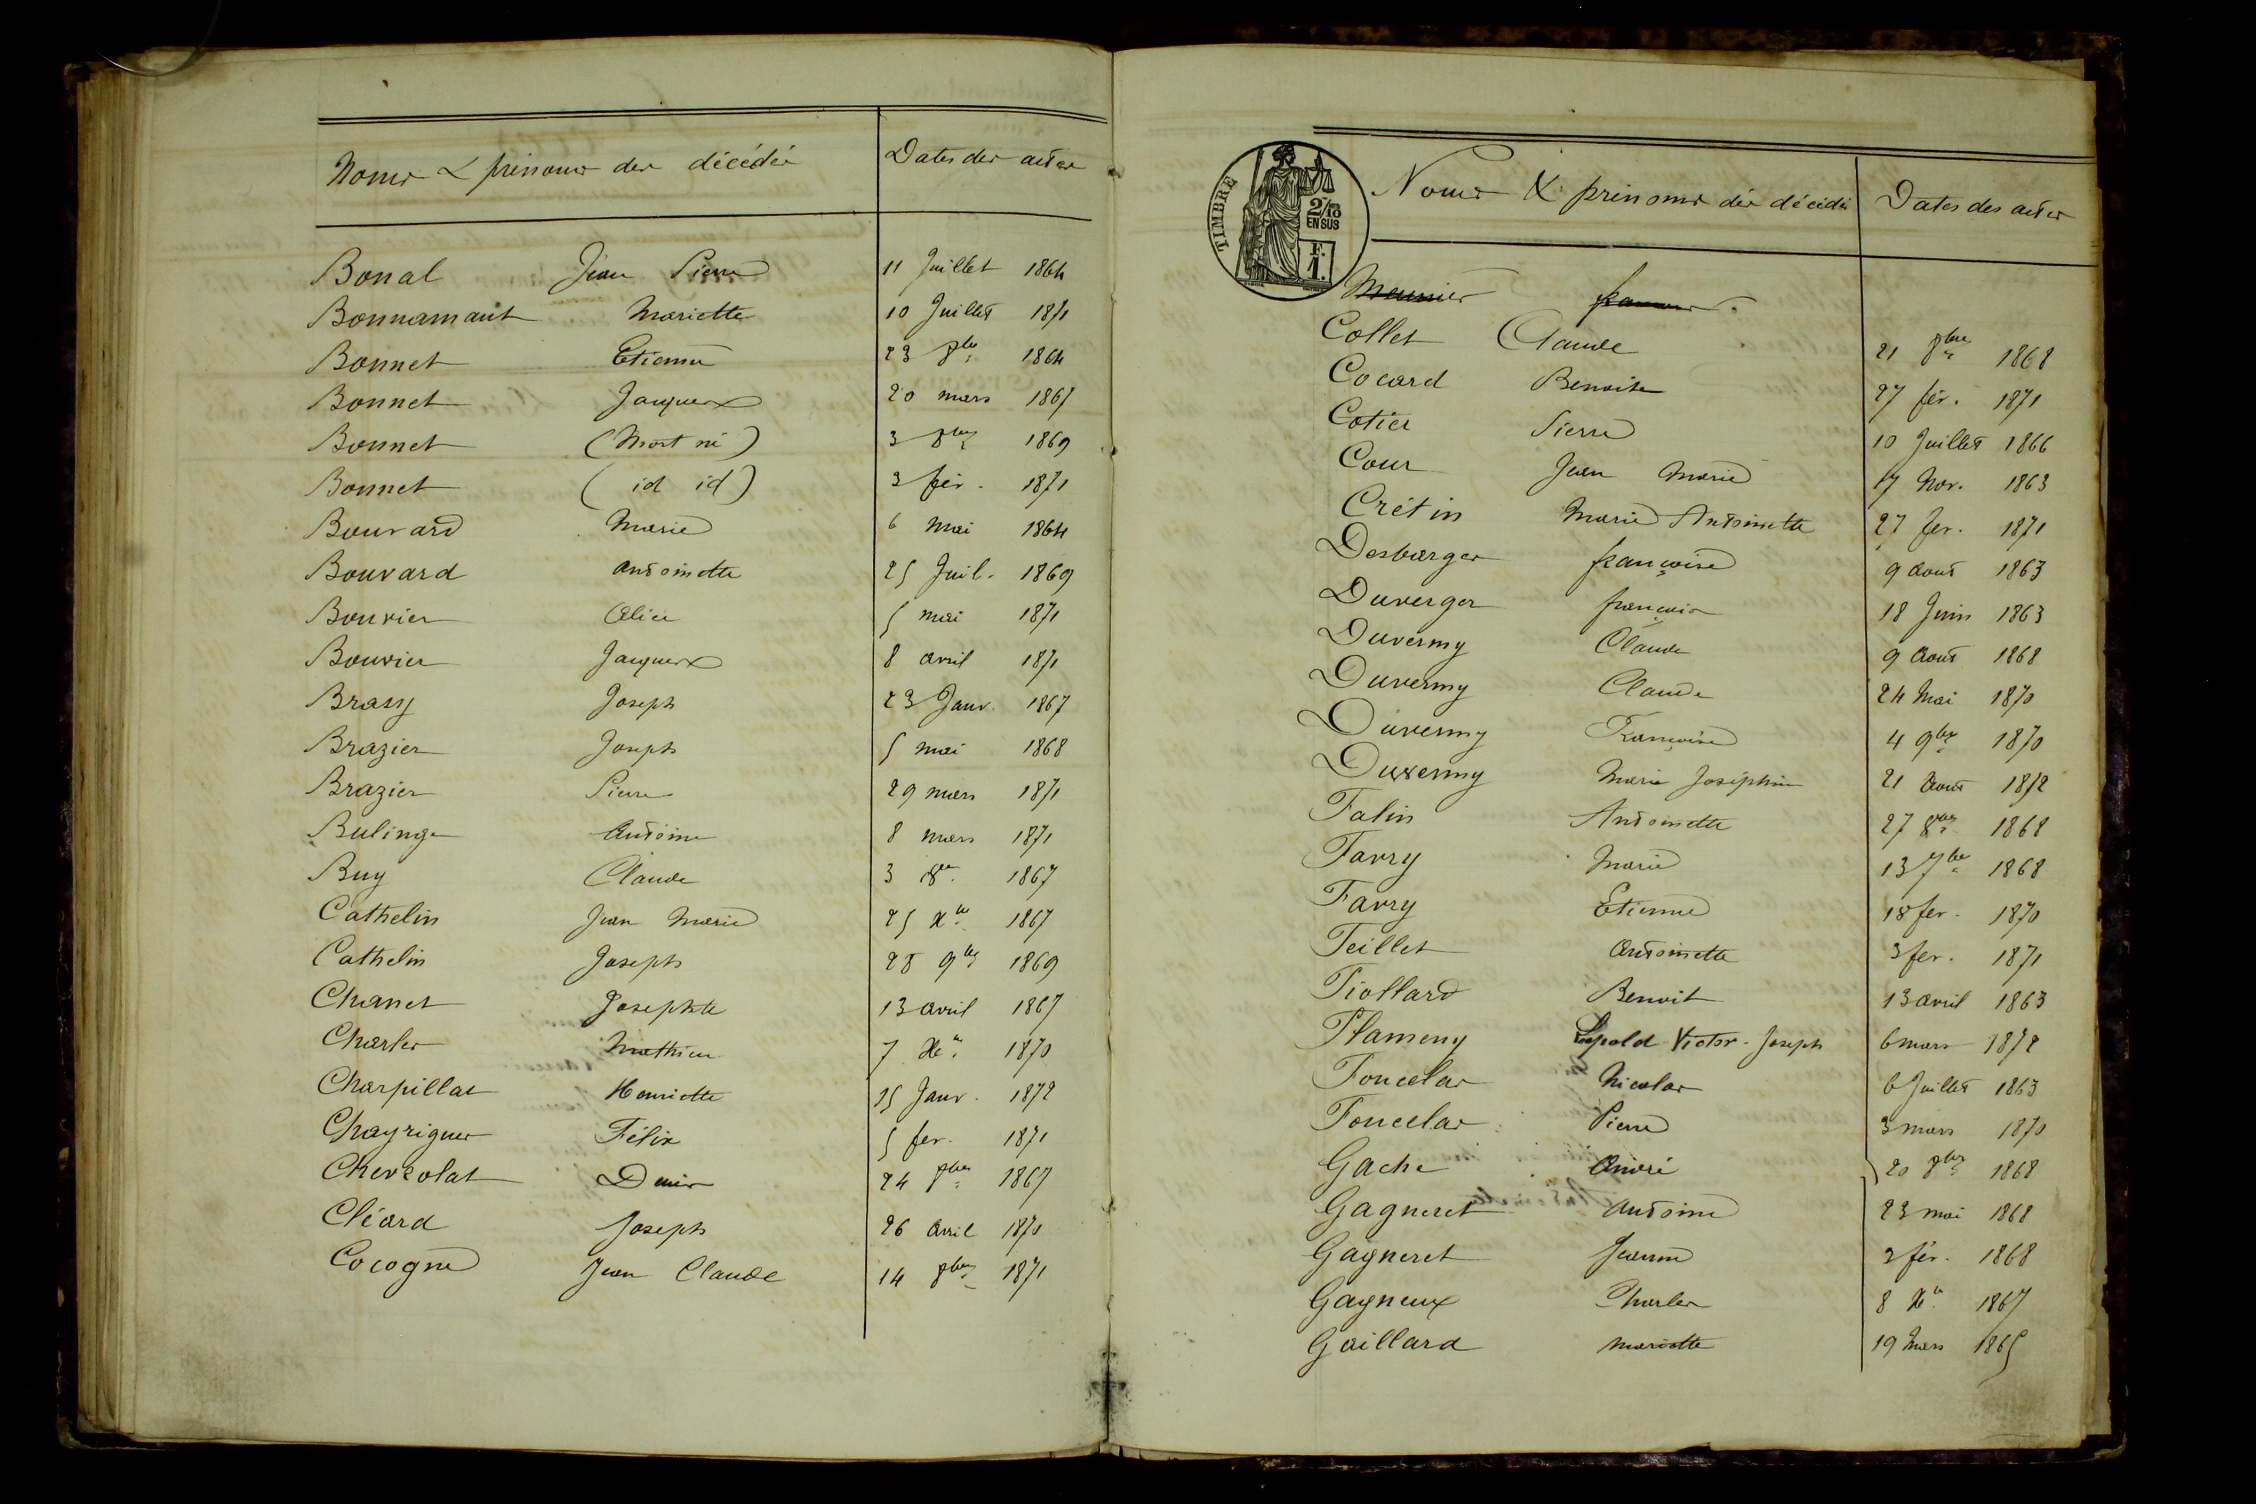 Noms & prénoms des décédés Dates des actes
Bonal Jean Pierre 11 Juillet 1864
Bonnamant Mariette 10 Juillet 1871
Bonnet Etienne 23 8bre 1864
Bonnet Jacques 20 mars 1867
Bonnet (Mort né) 3 8bre 1869
Bonnet (id id) 3 fév. 1871
Bouvard Marie 6 mai 1864
Bouvard Antoinette 25 Juil. 1869
Bouvier Alice 5 mai 1871
Bouvier Jacques 8 avril 1871
Brasy Joseph 23 Janv. 1867
Brazier Joseph 5 mai 1868
Brazier Pierre 29 mars 1871
Bulinge Antoine 8 mars 1871
Buy Claude 3 8re 1867
Cathelin Jean Marie 25 Xbre 1867
Cathelin Joseph 28 9bre 1869
Chanet Josephte 13 avril 1867
Charles Mathieu 7 Xe 1870
Charpillat Henriette 25 Janv. 1872
Chayrigues Félix 5 fev. 1871
Chevrolat Denis 24 8bre 1867
Cléard Joseph 26 avril 1870
Cocogne Jean Claude 14 8bre 1871
TIMBRE
2/10
EN SUS
F.
1.
Noms & prénoms des décédés Dates des actes
Meunier
Collet Claude 21 8bre 1868
Cocard Benoite 27 fév. 1871
Cotier Pierre 10 Juillet 1866
Cour Jean Marie 17 Nov. 1863
Crétin Marie Antoinette 27 fev. 1871
Desbarger françoise 9 Aout 1863
Duverger françois 18 Juin 1863
Duvermy Claude 9 Aout 1868
Duvermy Claude 24 Mai 1870
Duvermy Françoise 4 9bre 1870
Duvermy Marie Joséphine 21 Aout 1872
Falin Antoinette 27 8bre 1868
Favry Marie 13 7bre 1868
Favry Etienne 18 fev. 1870
Feillet Antoinette 3 fev. 1871
Fiollard Benoit 13 avril 1863
Flameny Léopold Victor Joseph 6 mars 1872
Foncelas Nicolas 6 Juillet 1863
Foncelas Pierre 3 mars 1870
Gache André 20 8bre 1868
Gagneret Antoine 23 mai 1868
Gagneret Jeanne 2 fév. 1868
Gagneux Charles 8 Xe 1867
Gaillard Mariette 19 Mars 1865